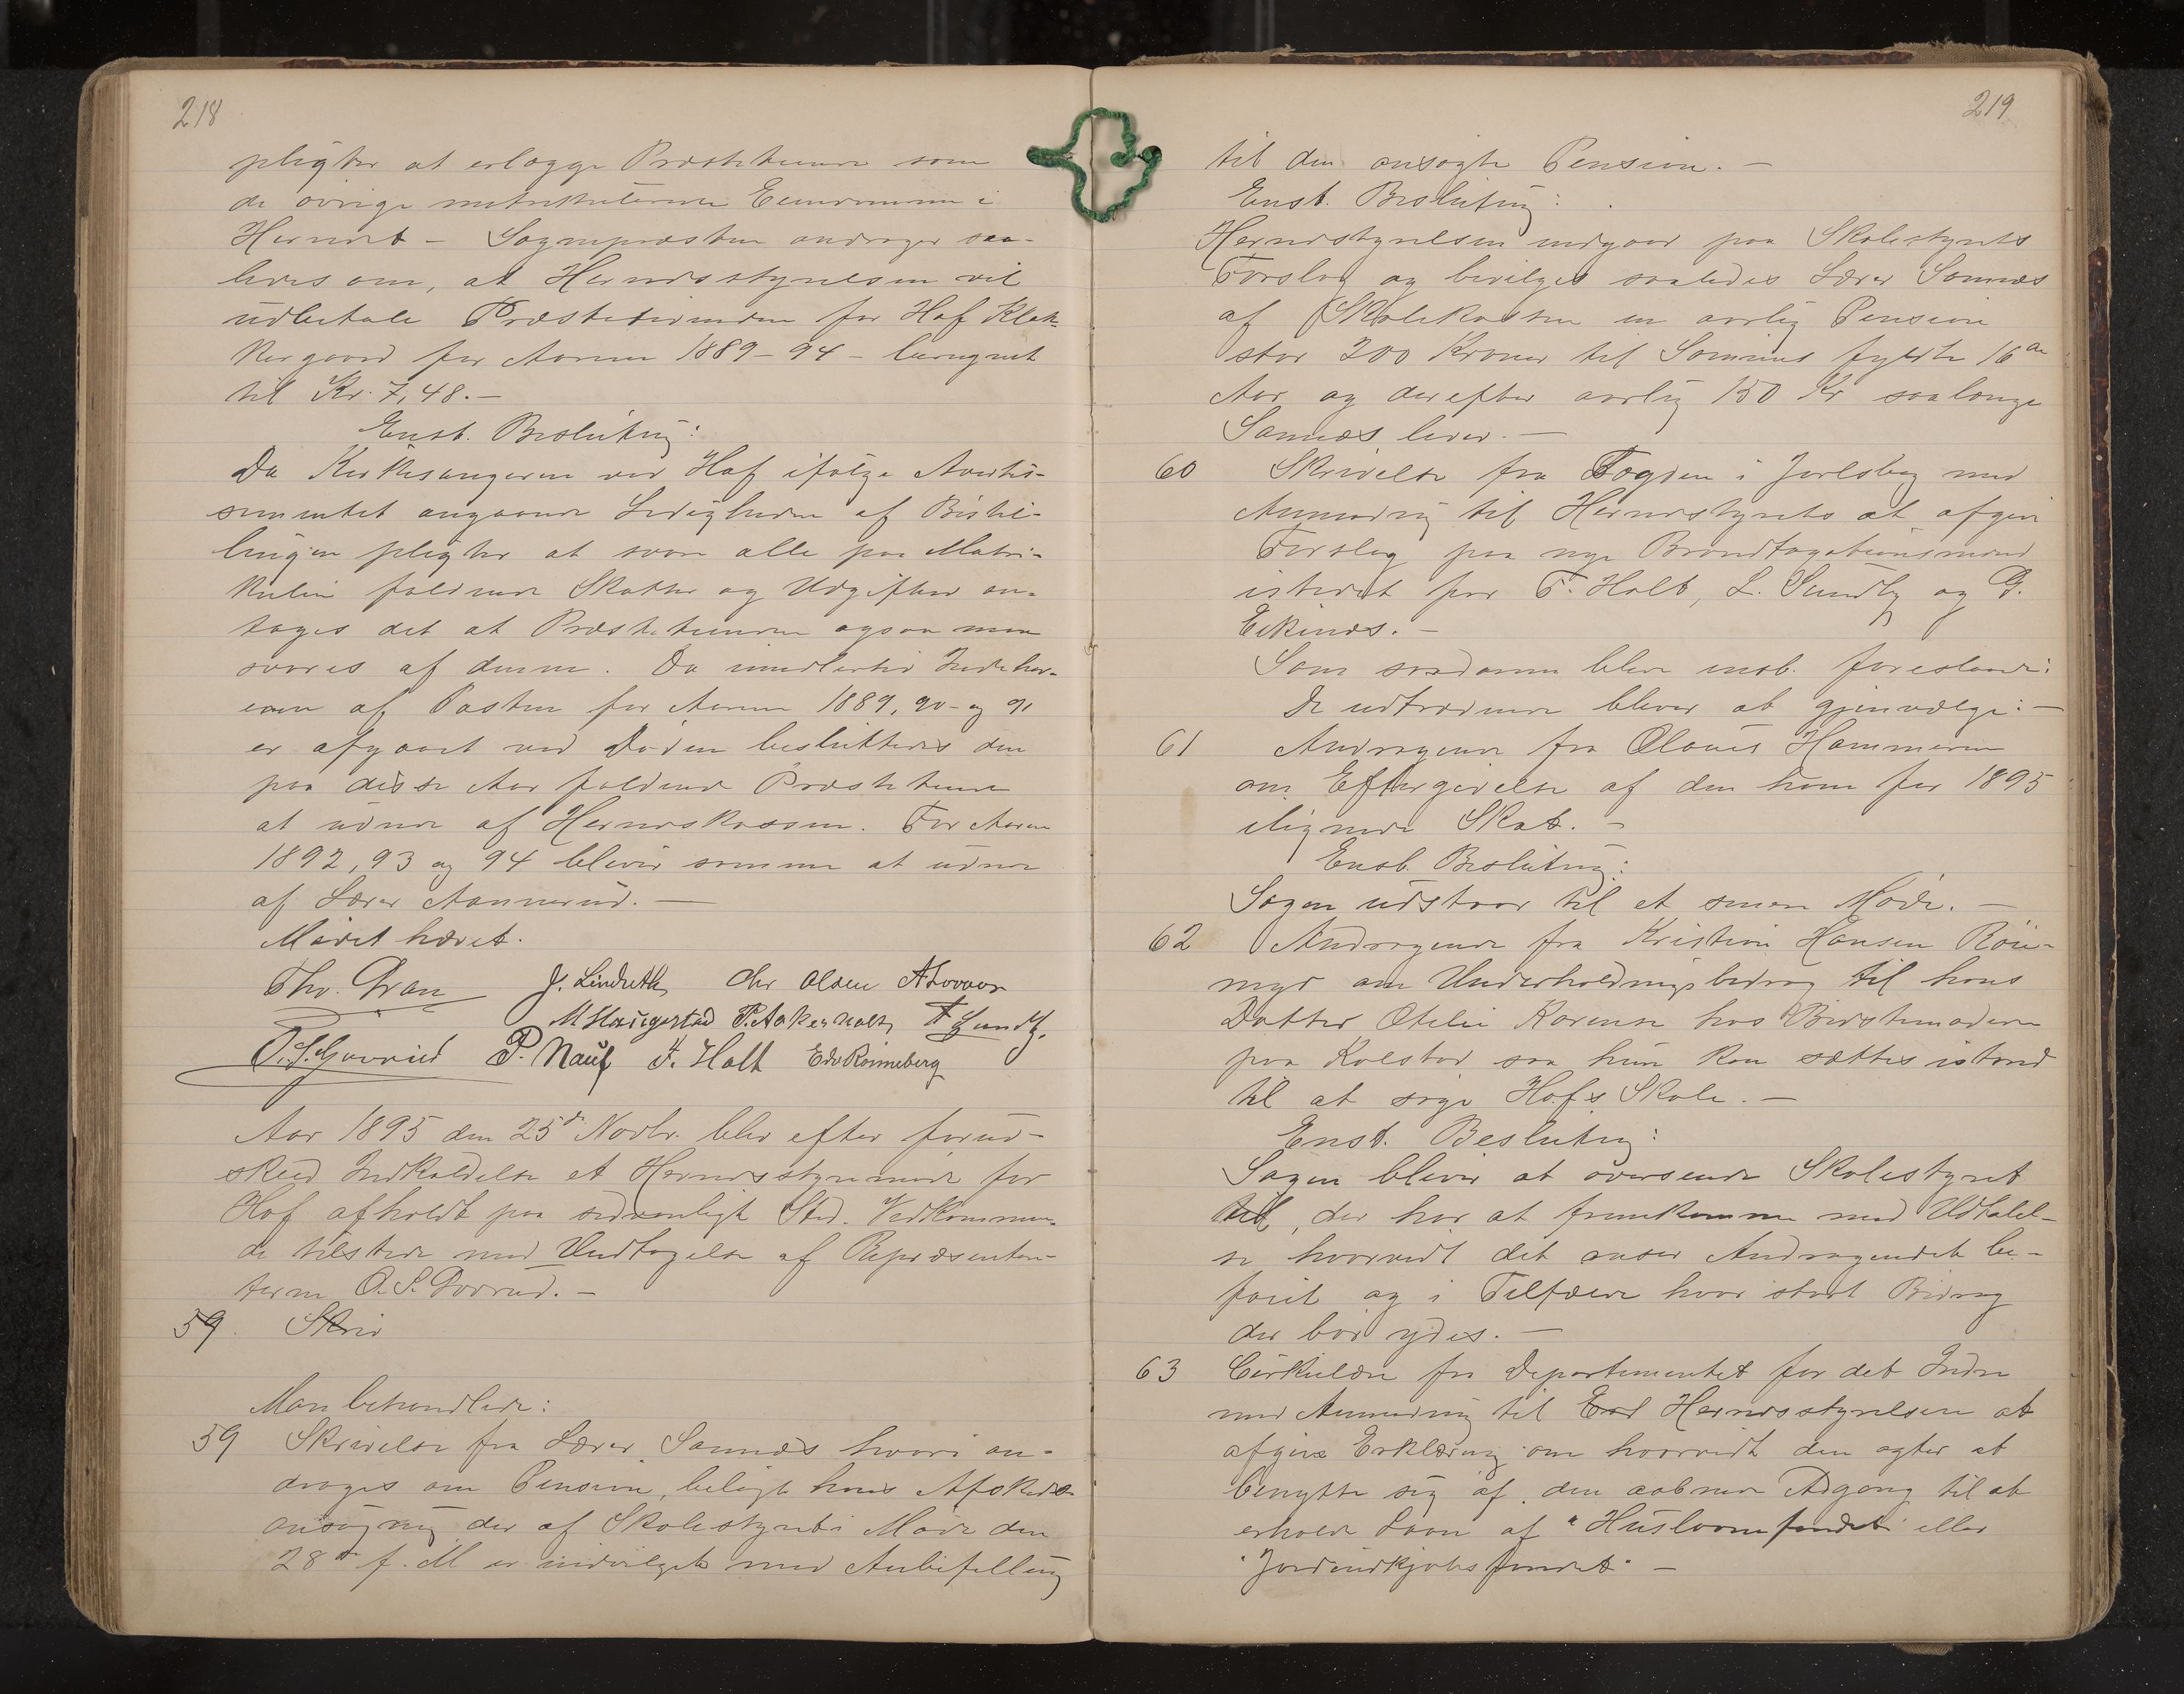 218
pligter at erlægge Præstetienden som
de øvrige matrikulerede Eiendomme i
Herredet – Sognepræsten andrager saa-
ledes om, at Herredsstyrelsen vil
udbetale Præstetienden for Hof Klok-
kergaard for Aarene 1889–94 – beregnet
til Kr. 7,48. –
Enst. Beslutning:
Da Kirkesangeren ved Hof ifølge Avertis-
sementet angaaende Ledigheden af Bestil-
lingen pligter at svare alle paa Matri-
kulen faldende Skatter og Udgifter an-
tages det at Præstetienden ogsaa maa
svares af denne. Da imidlertid Indehav-
eren af Posten for Aarene 1889, 90 og 91
er afgaaet ved Døden besluttedes den
paa disse Aar faldende Præstetiende
at udrede af Herredskassen. For Aarene
1892, 93 og 94 bliver samme at udrede
af Lærer Aannerud. –
Mødet hævet.
Thv. Gran J. Lindseth Chr Olsen
M Haugestad P. Aakerholt
P. Nauf F. Holt Edv Rønneberg
Aar 1895 den 25de Novbr. blev efter forud-
skeed Indkaldelse et Herredsstyremøde for
Hof afholdt paa sedvanligt Sted. Vedkommen-
de tilstede med Undtagelse af Repræsentan-
terne O. S. Govrud. –
59. Skriv
Man behandlede:
59 Skrivelse fra Lærer Sannæs hvori an-
drages om Pension, belagt hans Afskeds-
ansøgning der af Skolestyret i Møde den
28de f. M er indvilget med Anbefalling
219
til den ansøgte Pension. –
Enst. Beslutning:
Herredstyrelsen indgaar paa Skolestyrets
Forslag og bevilges saaledes Lærer Sannæs
af Skolekassen en aarlig Pension
stor 200 Kroner til Sønnens fyldte 16de
Aar og derefter aarlig 150 Kr saalænge
Sannæs lever. –
60 Skrivelse fra Fogden i Jarlsberg med
Anmodning til Herredstyret at afgive
Forslag paa nye Brandtaxationsmænd
istedet for F. Holt, L. Sundby og G.
Eikenæs. –
Som saadanne blev enst. foreslaaet:
De udtrædende bliver at gjenvælge: –
61 Andragende fra Olaves Hammeren
om Eftergivelse af den ham for 1895
ilignede Skat. –
Enst. Beslutning:
Sagen udstaar til et senere Møde. –
62 Andragende fra Kristian Hansen Røn-
myr om Underholdningsbidrag til hans
Datter Otelie Karense hos Bedstemoderen
paa Kolstad, saa hun kan sættes istand
til at søge Hofs Skole. –
Enst. Beslutning:
Sagen bliver at oversende Skolestyret
til, der har at fremkomme med Udtalel-
se hvorvidt det anser Andragendet be-
føiet og i Tilfælde hvor stort Bidrag
der bør ydes. –
63 Cirkulære fra Departementet for det Indre
med Anmodning til End Herredsstyrelsen at
afgive Erklæring om hvorvidt den agter at
benytte sig af den aabnede Adgang til at
erholde Laan af "Huslaanefondet" eller
"Jordindkjøbsfondet" –